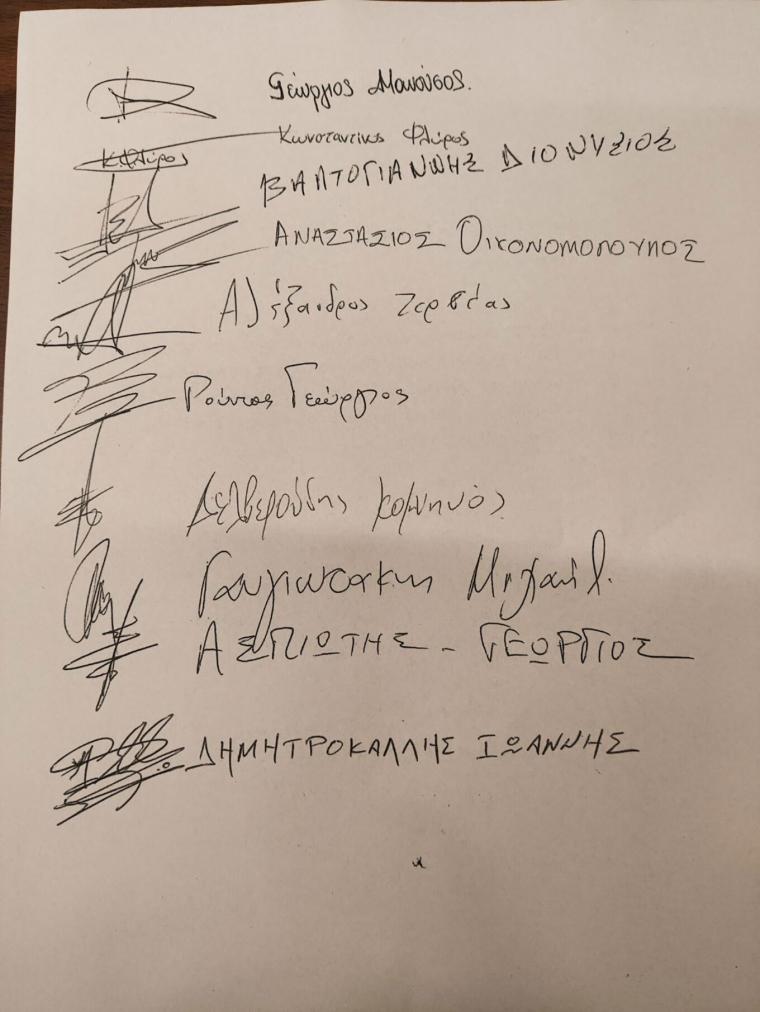 Γεώργιος Μανούσος.
Κωνσταντίνος Φλώρος
Κ Φλώρος
ΒΑΛΤΟΓΙΑΝΝΗΣ ΔΙΟΝΥΣΙΟΣ
ΑΝΑΣΤΑΣΙΟΣ ΟΙΚΟΝΟΜΟΠΟΥΛΟΣ
Αλέξανδρος Ζερβέας
Ρούντος Γεώργιος
Δελβερούδης Κομνηνός
Μιχαήλ
ΑΣΠΙΩΤΗΣ - ΓΕΩΡΓΙΟΣ
ΔΗΜΗΤΡΟΚΑΛΛΗΣ ΙΩΑΝΝΗΣ